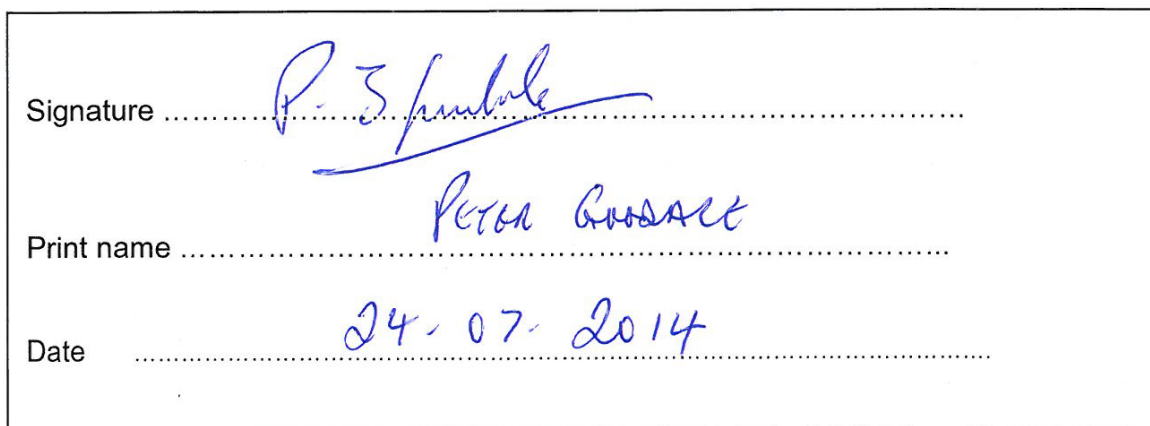 Signature ....................................................
Print name PETER GOODALE ....................................................
Date 24-07-2014 ....................................................